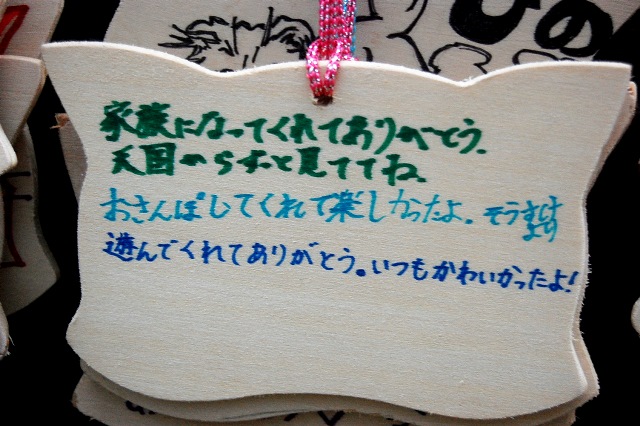 ひの
家族になってくれてありがとう。
天国からずっと見ててね。
おさんぽしてくれて楽しかったよ。そうすけ
より
遊んでくれてありがとう。いつもかわいかったよ!